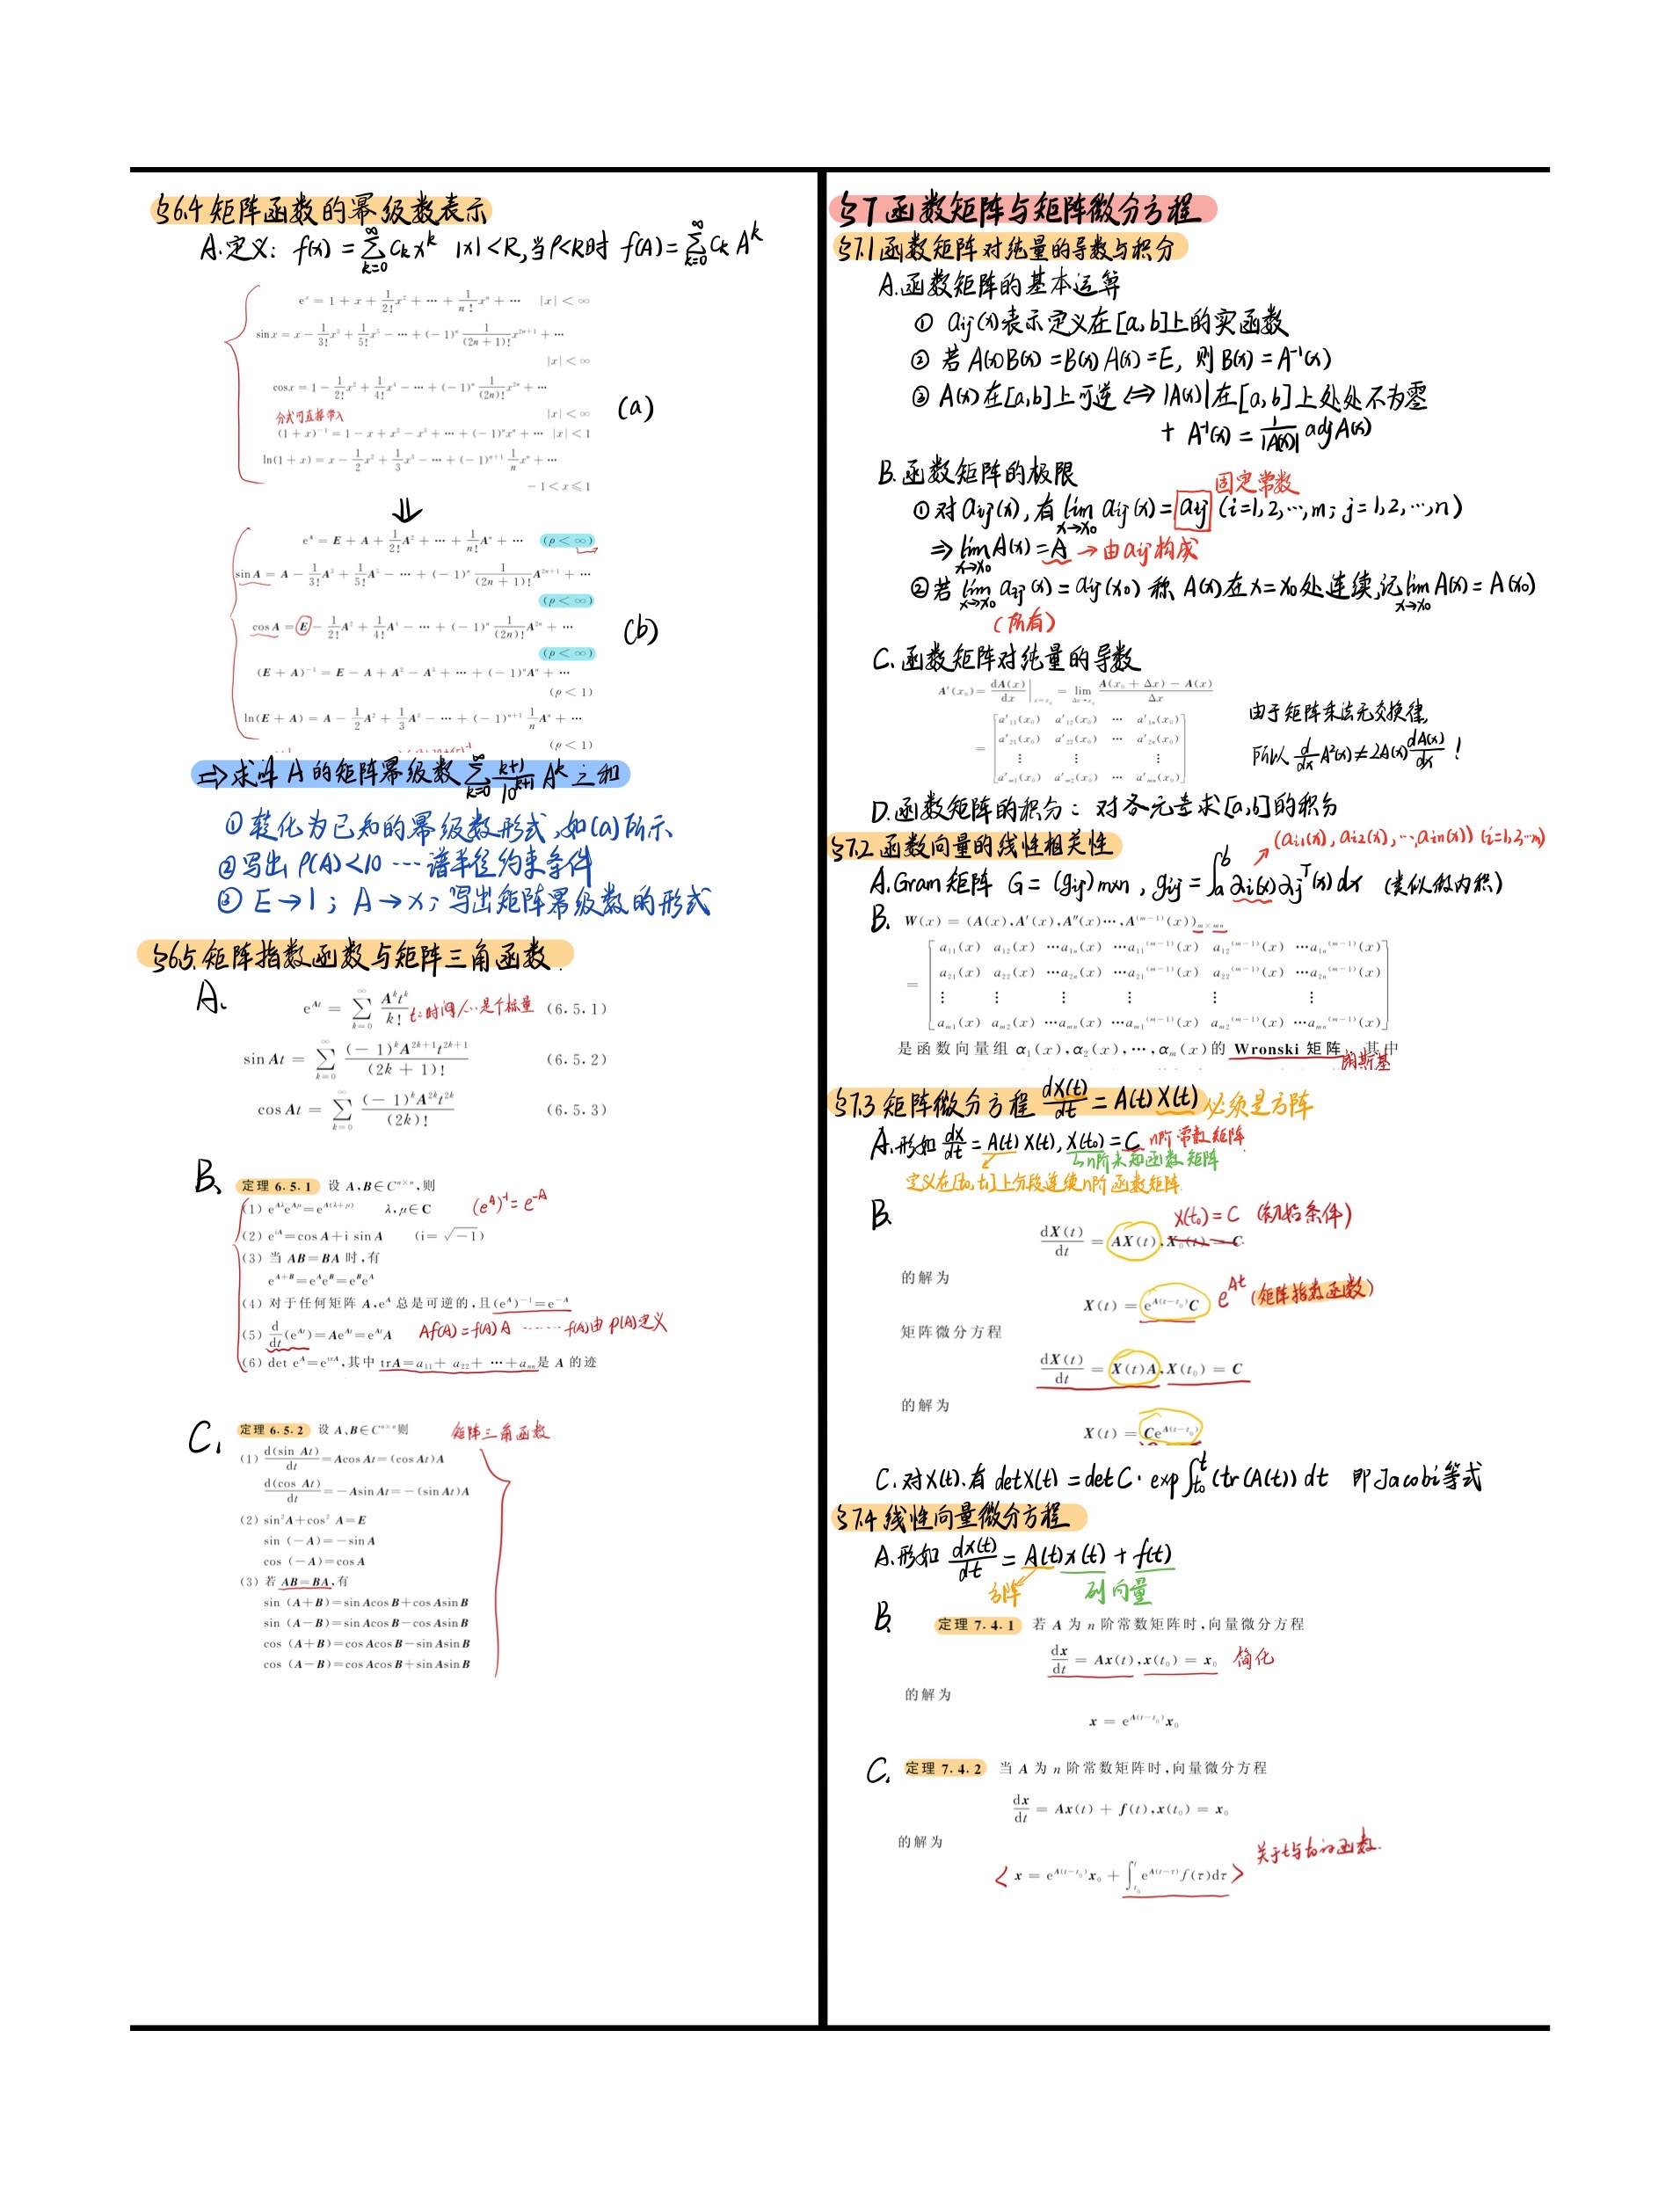 §6.4 矩阵函数的幂级数表示
A.定义: f(x) = ∑_{k=0}^{∞} c_k x^k |x|<R,当ρ<R时 f(A)=∑_{k=0}^{∞} c_k A^k
e^x = 1 + x + 1/2! x² + ⋯ + 1/n! x^n + ⋯ |x| < ∞
sin x = x − 1/3! x³ + 1/5! x⁵ − ⋯ + (−1)^n 1/(2n+1)! x^{2n+1} + ⋯
|x| < ∞
cos x = 1 − 1/2! x² + 1/4! x⁴ − ⋯ + (−1)^n 1/(2n)! x^{2n} + ⋯
分式可直接带入 |x| < ∞
(a)
(1+x)^{−1} = 1 − x + x² − x³ + ⋯ + (−1)^n x^n + ⋯ |x| < 1
ln(1+x) = x − 1/2 x² + 1/3 x³ − ⋯ + (−1)^{n+1} 1/n x^n + ⋯
−1 < x ≤ 1
⇓
e^A = E + A + 1/2! A² + ⋯ + 1/n! A^n + ⋯ (ρ < ∞)
sin A = A − 1/3! A³ + 1/5! A⁵ − ⋯ + (−1)^n 1/(2n+1)! A^{2n+1} + ⋯
(ρ < ∞)
cos A = E − 1/2! A² + 1/4! A⁴ − ⋯ + (−1)^n 1/(2n)! A^{2n} + ⋯
(b)
(ρ < ∞)
(E + A)^{−1} = E − A + A² − A³ + ⋯ + (−1)^n A^n + ⋯
(ρ < 1)
ln(E + A) = A − 1/2 A² + 1/3 A³ − ⋯ + (−1)^{n+1} 1/n A^n + ⋯
(ρ < 1)
⇒ 求 A 的矩阵幂级数 ∑_{k=0}^{∞} (k+1)/10^{k+1} A^k 之和
① 转化为已知的幂级数形式,如(a)所示
② 写出 ρ(A)<10 ⋯ 谱半径约束条件
③ E→1; A→x; 写出矩阵幂级数的形式
§6.5.矩阵指数函数与矩阵三角函数.
A.
e^{At} = ∑_{k=0}^{∞} A^k t^k / k! t:时间/⋯是个标量 (6.5.1)
sin At = ∑_{k=0}^{∞} (−1)^k A^{2k+1} t^{2k+1} / (2k+1)! (6.5.2)
cos At = ∑_{k=0}^{∞} (−1)^k A^{2k} t^{2k} / (2k)! (6.5.3)
B.
定理 6.5.1 设 A,B∈C^{n×n},则
(1) e^{Aλ}e^{Aμ}=e^{A(λ+μ)} λ,μ∈C (e^A)^{-1}=e^{-A}
(2) e^{iA}=cos A+i sin A (i=√−1)
(3) 当 AB=BA 时,有
e^{A+B}=e^A e^B=e^B e^A
(4) 对于任何矩阵 A,e^A 总是可逆的,且(e^A)^{−1}=e^{−A}
(5) d/dt (e^{At})=Ae^{At}=e^{At}A Af(A)=f(A)A ⋯⋯ f(A)由P(A)定义
(6) det e^A=e^{trA},其中 trA=a₁₁+a₂₂+⋯+a_{nn}是 A 的迹
C.
定理 6.5.2 设 A、B∈C^{n×n}则 矩阵三角函数
(1) d(sin At)/dt=Acos At=(cos At)A
d(cos At)/dt=−Asin At=−(sin At)A
(2) sin²A+cos² A=E
sin (−A)=−sin A
cos (−A)=cos A
(3) 若 AB=BA,有
sin (A+B)=sin Acos B+cos Asin B
sin (A−B)=sin Acos B−cos Asin B
cos (A+B)=cos Acos B−sin Asin B
cos (A−B)=cos Acos B+sin Asin B
§7 函数矩阵与矩阵微分方程
§7.1函数矩阵对纯量的导数与积分
A.函数矩阵的基本运算
① aij(x)表示定义在[a,b]上的实函数
② 若 A(x)B(x)=B(x)A(x)=E, 则 B(x)=A^{-1}(x)
③ A(x)在[a,b]上可逆⇔|A(x)|在[a,b]上处处不为零
+ A^{-1}(x)= 1/|A(x)| adjA(x)
B.函数矩阵的极限
固定常数
① 对aij(x),有 lim_{x→x0} aij(x)=aij (i=1,2,⋯,m; j=1,2,⋯,n)
⇒ lim_{x→x0} A(x)=A → 由aij构成
② 若 lim_{x→x0} aij(x)=aij(x0) 称 A(x)在x=x0处连续,记lim_{x→x0} A(x)=A(x0)
(所有)
C.函数矩阵对纯量的导数
A′(x₀) = dA(x)/dx |_{x=x₀} = lim_{Δx→x₀} (A(x₀+Δx) − A(x))/Δx
= [a′₁₁(x₀) a′₁₂(x₀) ⋯ a′₁ₙ(x₀)
a′₂₁(x₀) a′₂₂(x₀) ⋯ a′₂ₙ(x₀)
⋮ ⋮ ⋮
a′ₘ₁(x₀) a′ₘ₂(x₀) ⋯ a′ₘₙ(x₀)]
由于矩阵乘法无交换律,
所以 d/dx A²(x)≠2A(x) dA(x)/dx !
D.函数矩阵的积分: 对各元素求[a,b]的积分
§7.2 函数向量的线性相关性
(ai1(x), ai2(x), ⋯, ain(x)) (i=1,2⋯m)
A.Gram矩阵 G=(gij)m×n, gij=∫_a^b αi(x)αj^T(x)dx (类似做内积)
B. W(x) = (A(x),A′(x),A″(x)⋯,A^{(m−1)}(x))_{m×mn}
= [a₁₁(x) a₁₂(x) ⋯a₁ₙ(x) ⋯a₁₁^{(m−1)}(x) a₁₂^{(m−1)}(x) ⋯a₁ₙ^{(m−1)}(x)
a₂₁(x) a₂₂(x) ⋯a₂ₙ(x) ⋯a₂₁^{(m−1)}(x) a₂₂^{(m−1)}(x) ⋯a₂ₙ^{(m−1)}(x)
⋮ ⋮ ⋮ ⋮ ⋮ ⋮
aₘ₁(x) aₘ₂(x) ⋯aₘₙ(x) ⋯aₘ₁^{(m−1)}(x) aₘ₂^{(m−1)}(x) ⋯aₘₙ^{(m−1)}(x)]
是函数向量组 α₁(x),α₂(x),⋯,αₘ(x)的 Wronski 矩阵,其中
朗斯基
§7.3 矩阵微分方程 dX(t)/dt = A(t)X(t) 必须是方阵
A.形如 dx/dt = A(t)X(t), X(t0)=C n阶常数矩阵
n阶未知函数矩阵
定义在[t0,t1]上分段连续n阶函数矩阵.
B. X(t0)=C (初始条件)
dX(t)/dt = AX(t),X₀(t) = C
的解为
X(t) = e^{A(t−t₀)}C e^{At} (矩阵指数函数)
矩阵微分方程
dX(t)/dt = X(t)A,X(t₀) = C
的解为
X(t) = Ce^{A(t−t₀)}
C.对X(t).有 detX(t)=detC·exp∫_{t0}^{t}(tr(A(t))dt 即Jacobi等式
§7.4 线性向量微分方程
A.形如 dx(t)/dt = A(t)x(t)+f(t)
方阵 列向量
B. 定理 7.4.1 若 A 为 n 阶常数矩阵时,向量微分方程
dx/dt = Ax(t),x(t₀) = x₀ 简化
的解为
x = e^{A(t−t₀)}x₀
C. 定理 7.4.2 当 A 为 n 阶常数矩阵时,向量微分方程
dx/dt = Ax(t) + f(t),x(t₀) = x₀
的解为
x = e^{A(t−t₀)}x₀ + ∫_{t₀}^{t} e^{A(t−τ)}f(τ)dτ 关于t与t0的函数.